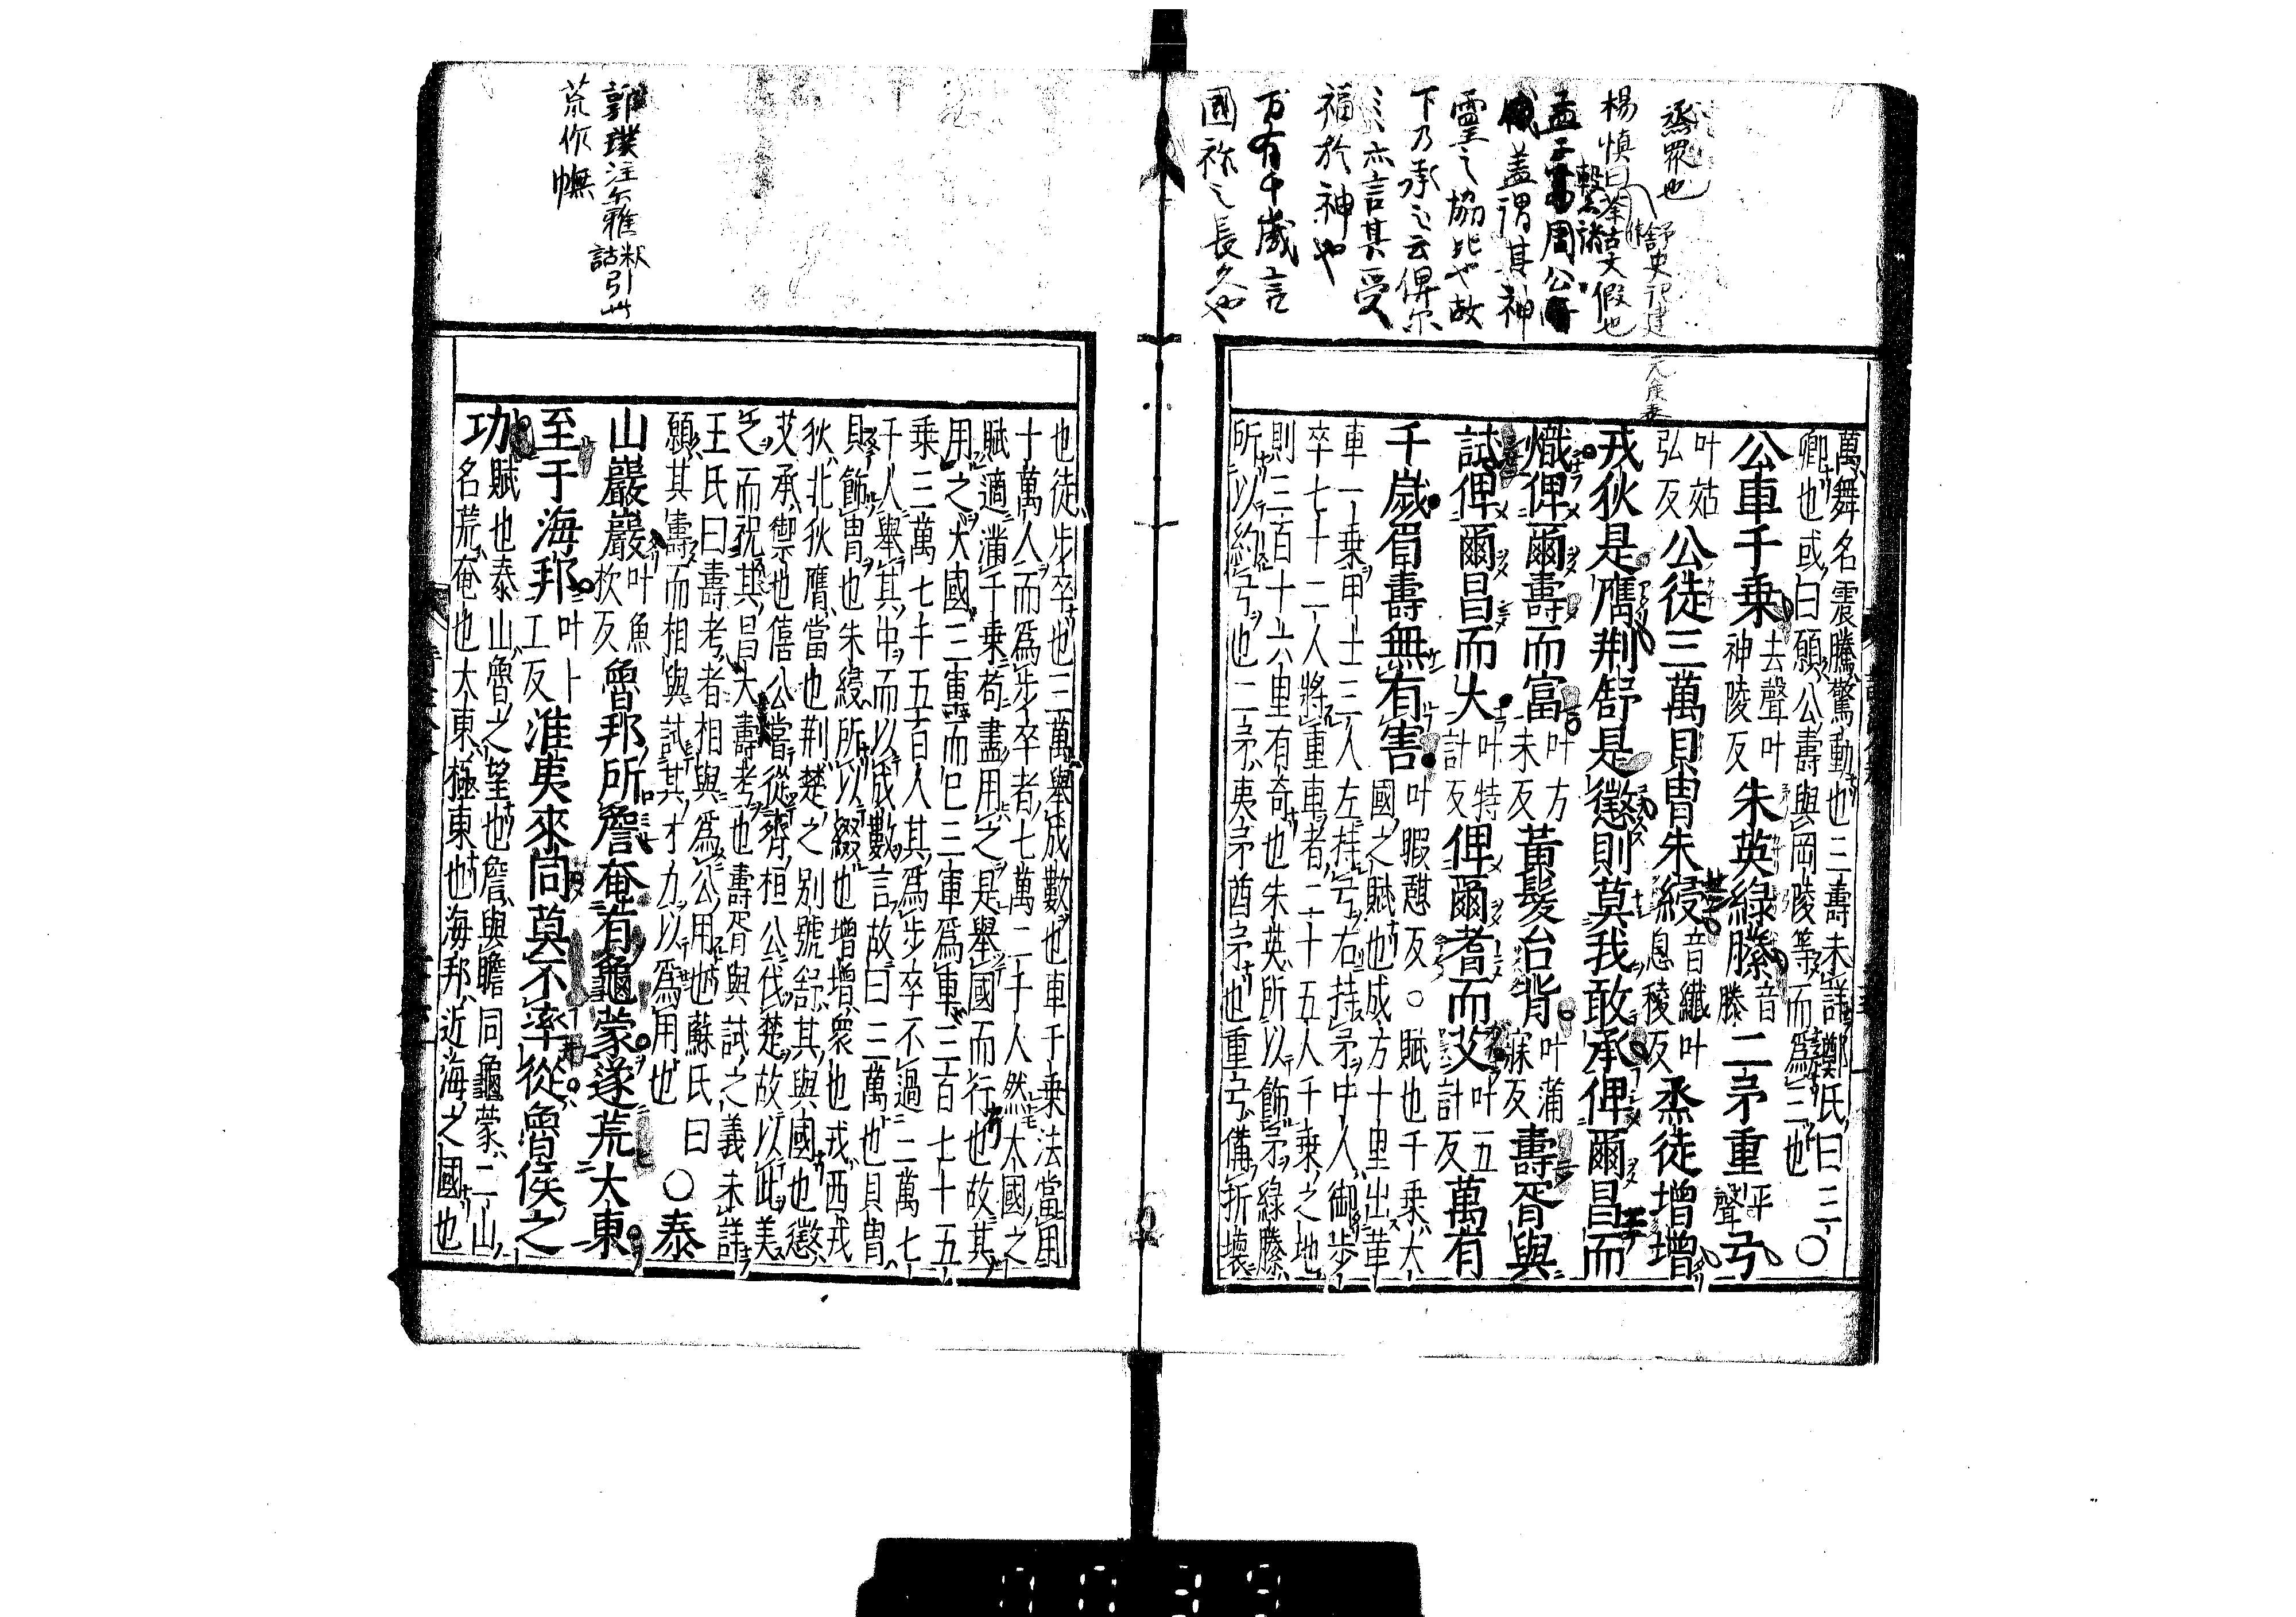 烝眾也
楊慎曰荼古文假也
舒史記建
元侯表
作
盖謂其神
靈之協比也故
下乃承之云俾尔
云亦言其受
福於神也
万有千歲言
國祚之長久也
萬舞名震騰驚動也三壽未詳鄭氏曰三
卿也或曰願公壽與岡陵等而為三也〇
公車千乗去聲叶神陵反朱英綠縢音滕二矛重平聲弓
叶姑弘反公徒三萬貝冑朱綅音纖叶息稜反烝徒增增
戎狄是膺荆舒是懲則莫我敢承俾爾昌而
熾俾爾壽而富叶方未反黃髮台背叶蒲寐反壽胥與
試俾爾昌而大叶特計反俾爾耆而艾叶五計反萬有
千歲眉壽無有害叶暇憩反〇賦也千乗大國之賦也成方十里出革
車一乗甲士三人左持弓右持矛中人御步
卒七十二人將重車者二十五人千乗之地
則三百十六里有奇也朱英所以飾矛綠縢
所以約弓也二矛夷矛酋矛也重弓備折壞
也徒步卒也三萬舉成數也車千乗法當用
十萬人而為步卒者七萬二千人然大國之
賦適滿千乗苟盡用之是舉國而行也故其
用之大國三軍而已三軍為車三百七十五
乗三萬七千五百人其為步卒不過二萬七
千人舉其中而以成數言故曰三萬也貝冑
貝飾冑也朱綅所以綴也增增衆也戎西戎
狄北狄膺當也荆楚之別號舒其與國也懲
艾承禦也僖公嘗從齊桓公伐楚故以此美
之而祝其昌大壽考也壽胥與試之義未詳
王氏曰壽考者相與為公用也蘇氏曰
願其壽而相與試其才力以為用也〇泰
山巖巖叶魚杴反魯邦所詹奄有龜蒙遂荒大東
至于海邦叶卜工反淮夷來同莫不率從魯侯之
功賦也泰山魯之望也詹與瞻同龜蒙二山
名荒奄也大東極東也海邦近海之國也
郭璞注尔雅釈詁引此
荒作幠